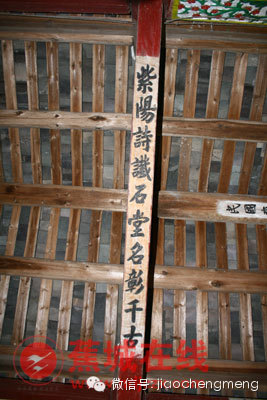 紫陽詩讖石堂名彰千古
民國
蕉城在线
微信号:jiaochengmeng